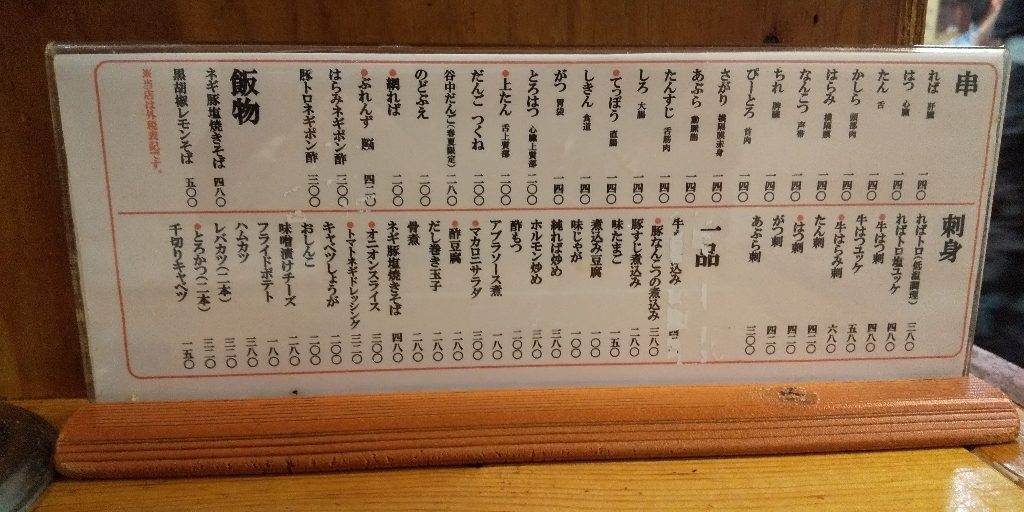 串
れば 肝臓 一四〇
はつ 心臓 一四〇
たん 舌 一四〇
かしら 頭部肉 一四〇
はらみ 横隔膜 一四〇
なんこつ 声帯 一四〇
ちれ 脾臓 一四〇
ぴーとろ 首肉 一四〇
さがり 横隔膜赤身 一四〇
あぶら 動脈脂 一四〇
たんすじ 舌筋肉 一四〇
しろ 大腸 一四〇
●てっぽう 直腸 一四〇
しきん 食道 一四〇
がつ 胃袋 一四〇
とろはつ 心臓上質部 二〇〇
●上たん 舌上質部 二〇〇
だんご つくね 二〇〇
谷中だんご(春夏限定) 二八〇
のどぶえ 二〇〇
●網れば 二〇〇
●ぶれんず 脳 四二〇
はらみネギポン酢 三〇〇
豚トロネギポン酢 三〇〇
飯物
ネギ豚塩焼きそば 四八〇
黒胡椒レモンそば 五〇〇
※当店は外税表記です。
刺身
ればトロ(低温調理) 三八〇
ればトロ塩ユッケ 四八〇
●牛はつ刺 四八〇
牛はつユッケ 五八〇
●牛はらみ刺 六八〇
たん刺 四二〇
●はつ刺 四二〇
がつ刺 四二〇
あぶら刺 三〇〇
一品
込み
●豚なんこつの煮込み 三八〇
豚すじ煮込み 二八〇
味たまご 一五〇
煮込み豆腐 一〇〇
味じゃが 一〇〇
純れば炒め 三八〇
ホルモン炒め 三八〇
酢もつ 二〇〇
アブラソース煮 一八〇
●マカロニサラダ 三〇〇
●酢豆腐 二八〇
だし巻き玉子 二八〇
骨煮 二八〇
ネギ豚塩焼きそば 四八〇
●オニオンスライス 三〇〇
●トマトネギドレッシング 三二〇
キャベツしょうが 一〇〇
おしんこ 二〇〇
味噌漬けチーズ 二八〇
フライドポテト 一八〇
ハムカツ 三八〇
レバカツ(二本) 三二〇
●とろかつ(二本) 三二〇
千切りキャベツ 一五〇